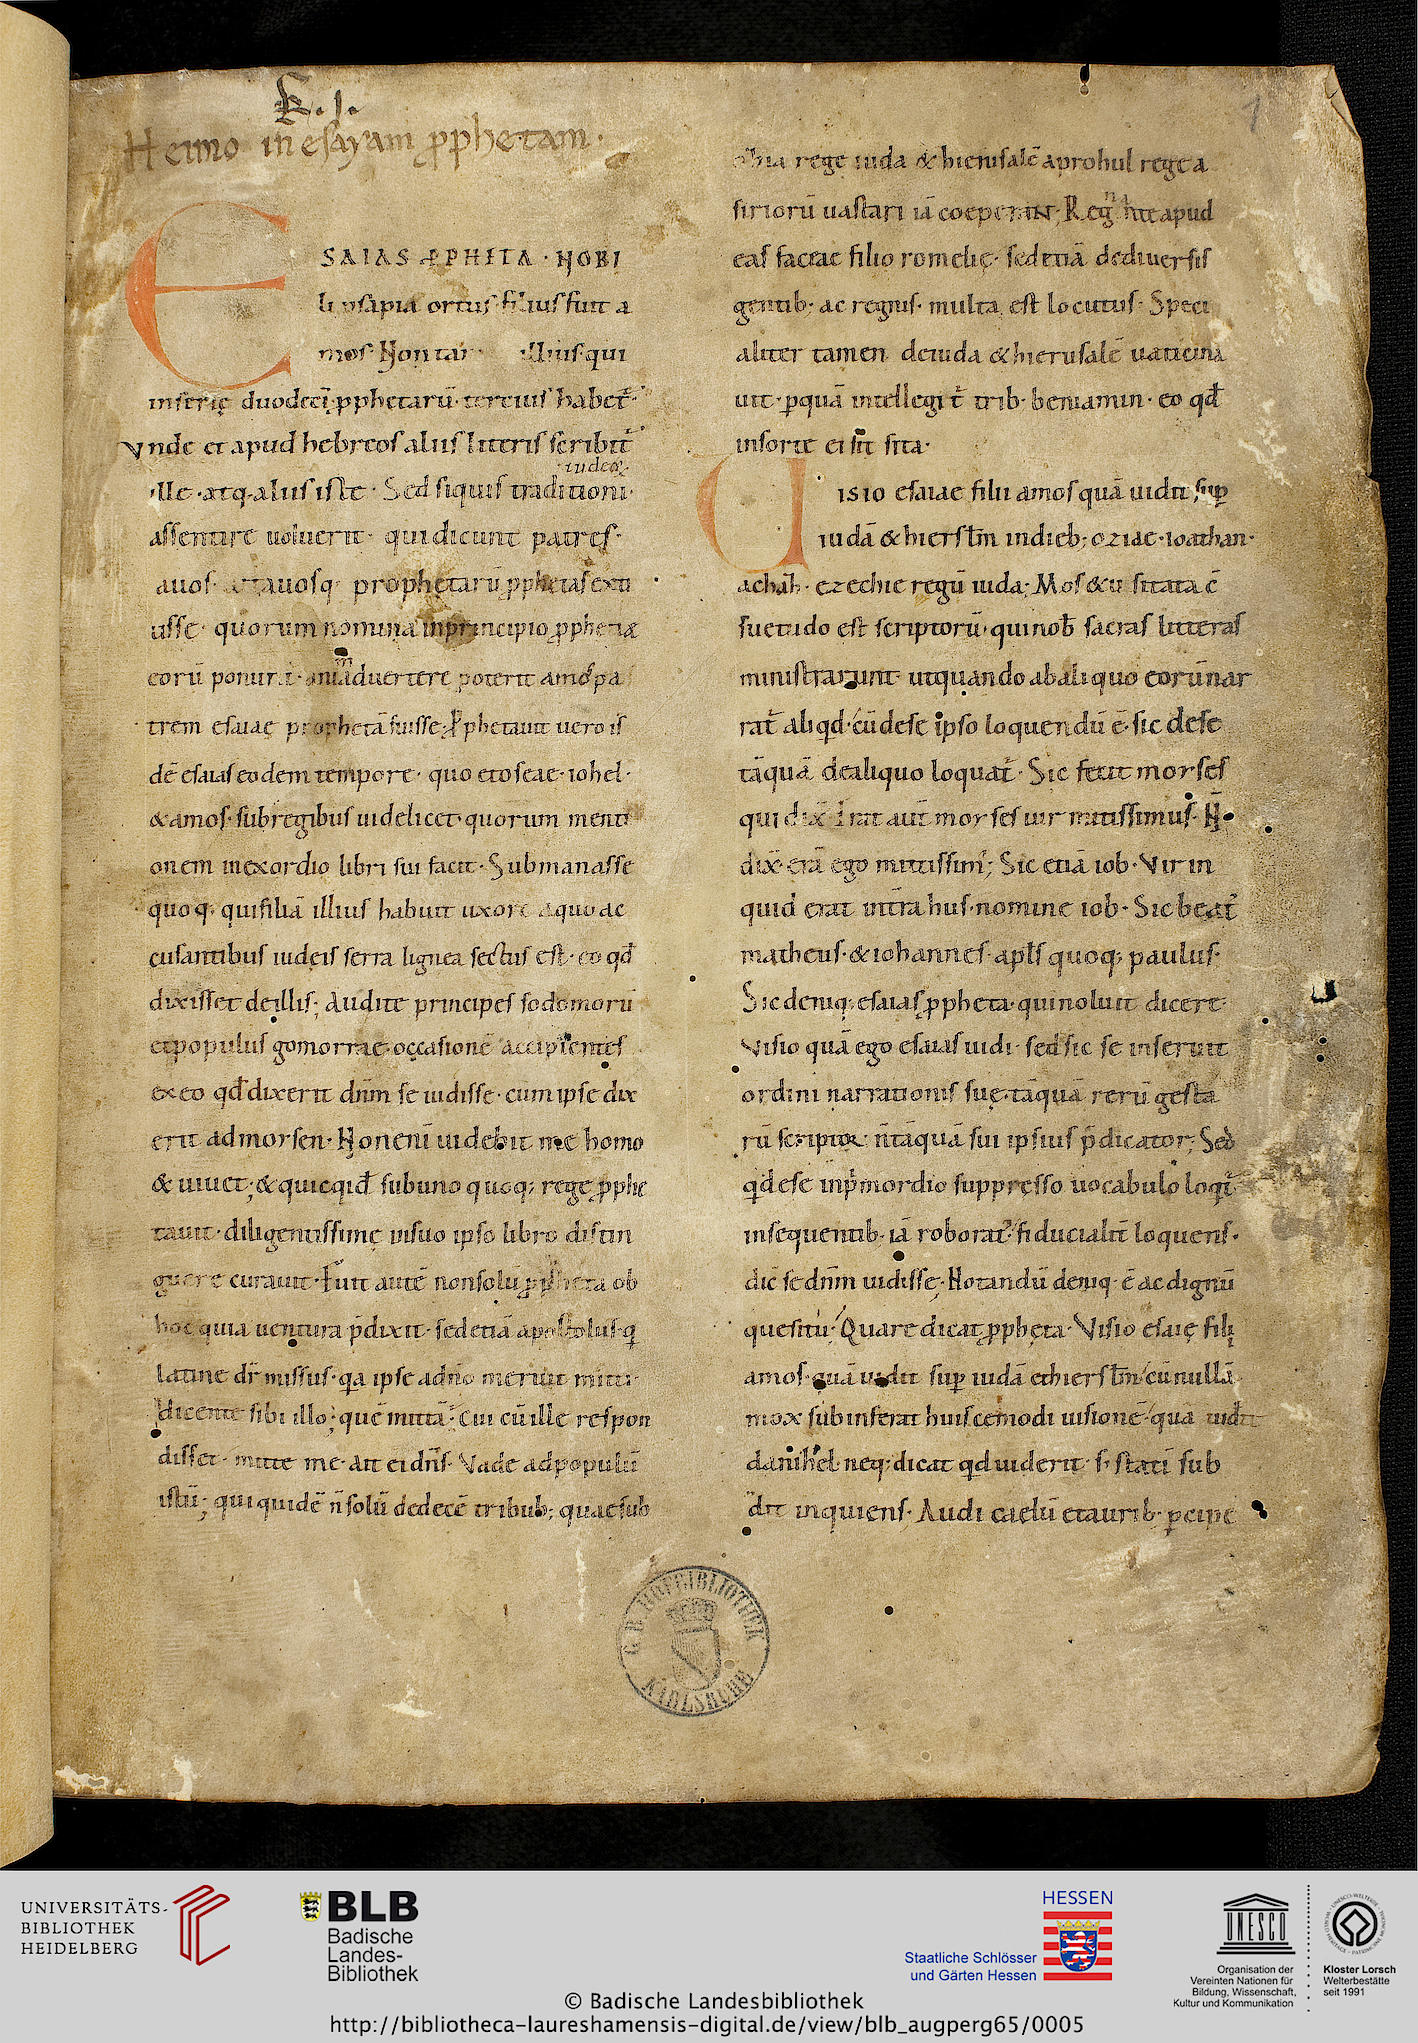 E. I.
Heimo in esayam ꝓphetam·
1
ESAIAS ꝓPHETA · NOBI
li ꝓsapia ortus· filius fuit a
mos· Non tam illius qui
in serie duodeci ꝓphetarū· tertius habet᷑·
Vnde et apud hebreos aliis litteris scribit᷑
iudeoꝝ
ille· atq; aliis iste· Sed siquis traditioni·
assentire uoluerit· qui dicunt patres·
auos· atauosq; prophetarū ꝓphetas exti
tisse· quorum nomina in principio ꝓphetiæ
eorū ponunt᷑· animaduertere poterit amos pa
trem esaiae prophetā fuisse· ꝓphetauit uero is
dē esaias eodem tempore· quo et oseae· iohel·
& amos· sub regibus uidelicet· quorum menti
onem in exordio libri sui facit· Sub manasse
quoq; qui filiā illius habuit uxorē a quo ac
cusantibus iudeis serra lignea sectus est· eo qđ
dixisset de illis; Audite principes sodomorū
et populus gomorrae· occasionē accipientes
ex eo qđ dixerit dn̄m se uidisse· cum ipse dix
erit ad moysen· Non enī uidebit me homo
& uiuet; & quicqđ sub uno quoq; rege ꝓphe
tauit· diligentissime in suo ipso libro distin
guere curauit· Fuit autē non solū ꝓpheta ob
hoc quia uentura p̄dixit· sed etiā apostolus· q̇
latine dr̄ missus· qa ipse a dn̄o meruit mitti·
dicente sibi illo; quē mittā· Cui cū ille respon
disset· mitte me· ait ei dn̄s· Vade ad populū
istū; qui quidē n̄ solū de decē tribub; quae sub
chia rege iuda & hierusalē a prohul rege a
siriorū uastari iā coeperant; Regnante apud
eas faceae filio romelię· sed etiā de diuersis
gentib; ac regnis· multa est locutus· Speci
aliter tamen de iuda & hierusalē uaticina
uit· ꝑ quā intellegit᷑ trib· beniamin· eo qđ
in sorte ei sit sita·
Uisio esaiae filii amos quā uidit suꝑ
iudā & hierslm̄ in dieb; oziae· ioathan·
achah· ezechie regū iuda; Mos & usitata c̄
suetudo est scriptorū· qui nob̄ sacras litteras
ministrarunt· ut quando ab aliquo eorū nar
rat᷑ aliqd· cū de se ipso loquendū ē· sic de se
tāquā de aliquo loquat᷑· Sic fecit moyses
qui dix̄· Erat aut̄ moyses uir mitissimus· N̄
dix̄· erā ego mitissim'; Sic etiā iob· Vir in
quid erat in t̄ra hus· nomine iob· Sic beat᷑
matheus· & iohannes· apl̄s quoq; paulus·
Sic deniq; esaias ꝓpheta· qui noluit dicere
Visio quā ego esaias uidi· sed sic se inseruit
ordini narrationis suę· tāquā rerū gesta
rū scriptor· n̄ tāquā sui ipsius p̄dicator; Sed
qđ de se in p̄mordio suppresso uocabulo loqt᷑
in sequentib· iā roborat᷑· fiducialit̄ loquens·
dic̄ se dn̄m uidisse· Notandū deniq· ē ac dignū
quesitu· Quare dicat ꝓpheta· Visio esaię filii
amos· quā uidit suꝑ iudā et hierslm̄· cū nullā
mox subinferat huiscemodi uisionē· quā uidit
danihel· neq; dicat qd uiderit· s; statī sub
dit inquiens· Audi caelū et aurib· ꝑcipe
G. B. HOFBIBLIOTHEK
KARLSRUHE
UNIVERSITÄTS-
BIBLIOTHEK
HEIDELBERG
BLB
Badische
Landes-
Bibliothek
HESSEN
Staatliche Schlösser
und Gärten Hessen
UNESCO
Organisation der
Vereinten Nationen für
Bildung, Wissenschaft,
Kultur und Kommunikation
Kloster Lorsch
Welterbestätte
seit 1991
© Badische Landesbibliothek
http://bibliotheca-laureshamensis-digital.de/view/blb_augperg65/0005